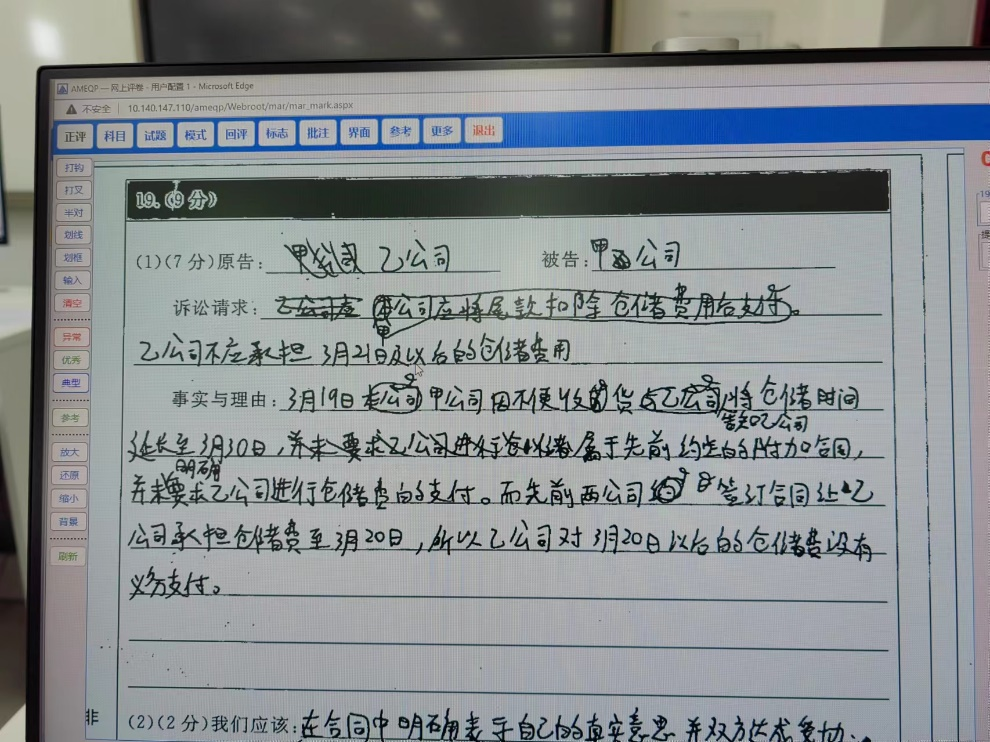 AMEQP — 网上评卷 - 用户配置 1 - Microsoft Edge
不安全 | 10.140.147.110/ameqp/Webroot/mar/mar_mark.aspx
正评 科目 试题 模式 回评 标志 批注 界面 参考 更多 退出
打钩
打叉
半对
划线
划框
输入
清空
异常
优秀
典型
参考
放大
还原
缩小
背景
刷新
19.(9分)
(1)(7分)原告: 乙公司 被告: 甲公司
诉讼请求: 甲公司应将尾款扣除仓储费用后支付。
乙公司不应承担3月21日及以后的仓储费用
事实与理由: 3月19日 甲公司因不便收货 将仓储时间
告知乙公司
延长至3月30日,并未要求乙公司进行 属于先前约定的附加合同,
明确
并未要求乙公司进行仓储费的支付。而先前两公司 签订合同让乙
公司承担仓储费至3月20日,所以乙公司对3月20日以后的仓储费没有
义务支付。
非
(2)(2分)我们应该: 在合同中明确表于自己的真实意思 并双方达成